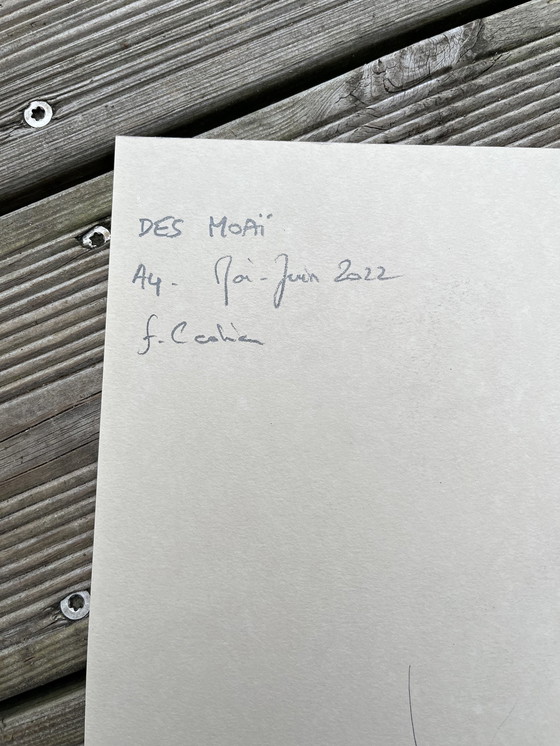 DES MOAÏ
A4. Mai-Juin 2022
f.